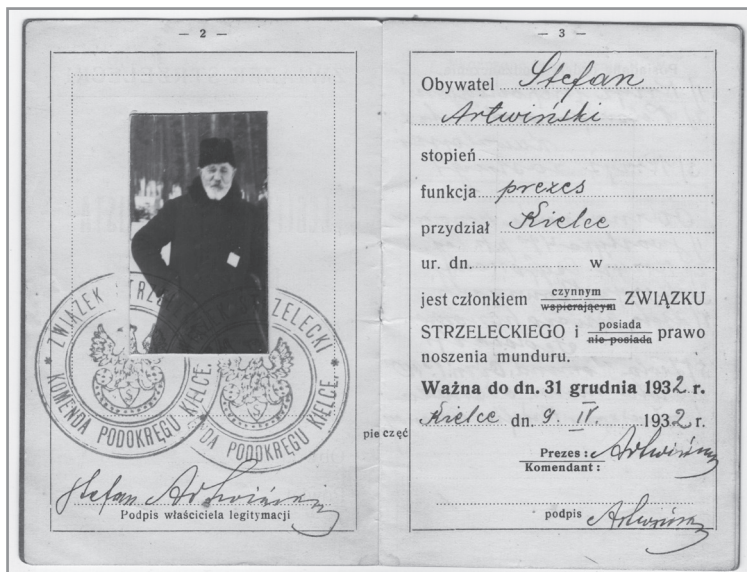 — 2 —
ZWIĄZEK STRZELECKI
KOMENDA PODOKRĘGU KIELCE.
ZELECKI
NDA PODOKRĘGU KIELCE.
S
S
Stefan Artwiński
Podpis właściciela legitymacji
— 3 —
Obywatel Stefan
Artwiński
stopień
funkcja prezes
przydział Kielce
ur. dn. w
jest członkiem czynnym wspierającym ZWIĄZKU
STRZELECKIEGO i posiada nie posiada prawo
noszenia munduru.
Ważna do dn. 31 grudnia 1932 r.
Kielce dn. 9. IV. 1932 r.
pieczęć
Prezes: Artwiński
Komendant:
podpis Artwiński